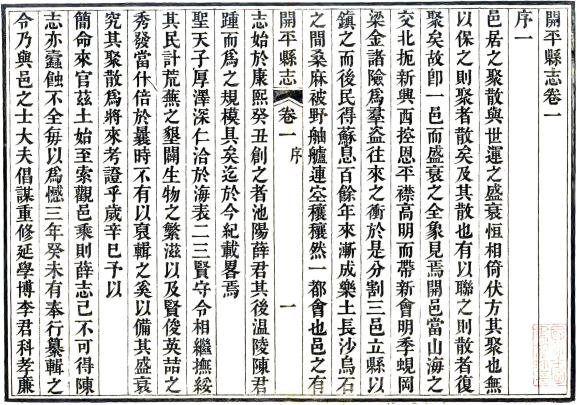 開平縣志卷一
序一
邑居之聚散與世運之盛衰恒相倚伏方其聚也無
以保之則聚者散矣及其散也有以聯之則散者復
聚矣故卽一邑而盛衰之全象見焉開邑當山海之
交北扼新興西控恩平襟高明而帶新會明季蜆岡
梁金諸險爲羣盜往來之衝於是分割三邑立縣以
鎮之而後民得蘇息百餘年來漸成樂土長沙烏石
之間桑麻被野舳艫連空穰穰然一都會也邑之有
開平縣志
卷一
序
一
志始於康熙癸丑創之者池陽薛君其後温陵陳君
踵而爲之規模具矣迄於今紀載畧焉
聖天子厚澤深仁洽於海表二三賢守令相繼撫綏
其民計荒蕪之墾闢生物之繁滋以及賢俊英喆之
秀發當什倍於曩時不有以裒輯之奚以備其盛衰
究其聚散爲將來考證乎歲辛巳予以
簡命來官茲土始至索觀邑乘則薛志已不可得陳
志亦蠹蝕不全每以爲憾三年癸未有奉行纂輯之
令乃與邑之士大夫倡謀重修延學博李君科孝廉